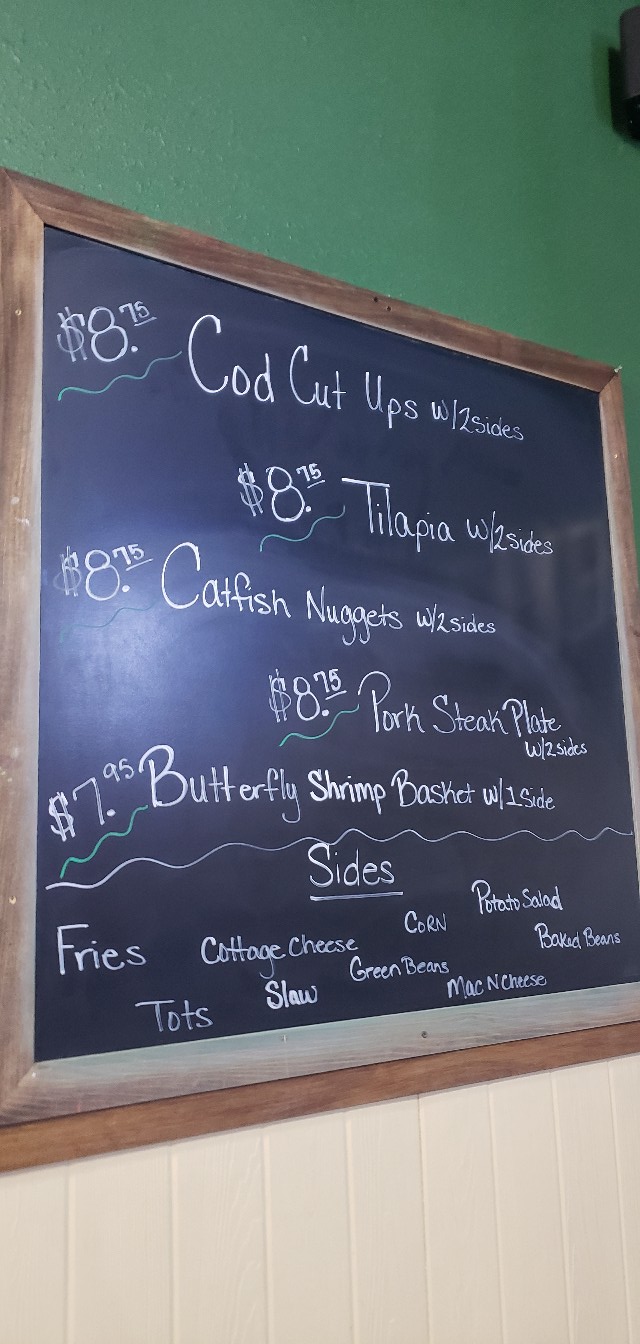 $8.75 Cod Cut Ups w/2sides
$8.75 Tilapia w/2sides
$8.75 Catfish Nuggets w/2sides
$8.75 Pork Steak Plate
w/2sides
$7.95 Butterfly Shrimp Basket w/1Side
Sides
Fries Cottage Cheese CORN Potato Salad
Tots Slaw Green Beans Mac N Cheese Baked Beans